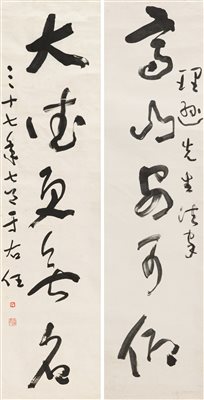 高山安可仰
理遜先生法家
大德更無名
三十七年七月于右任